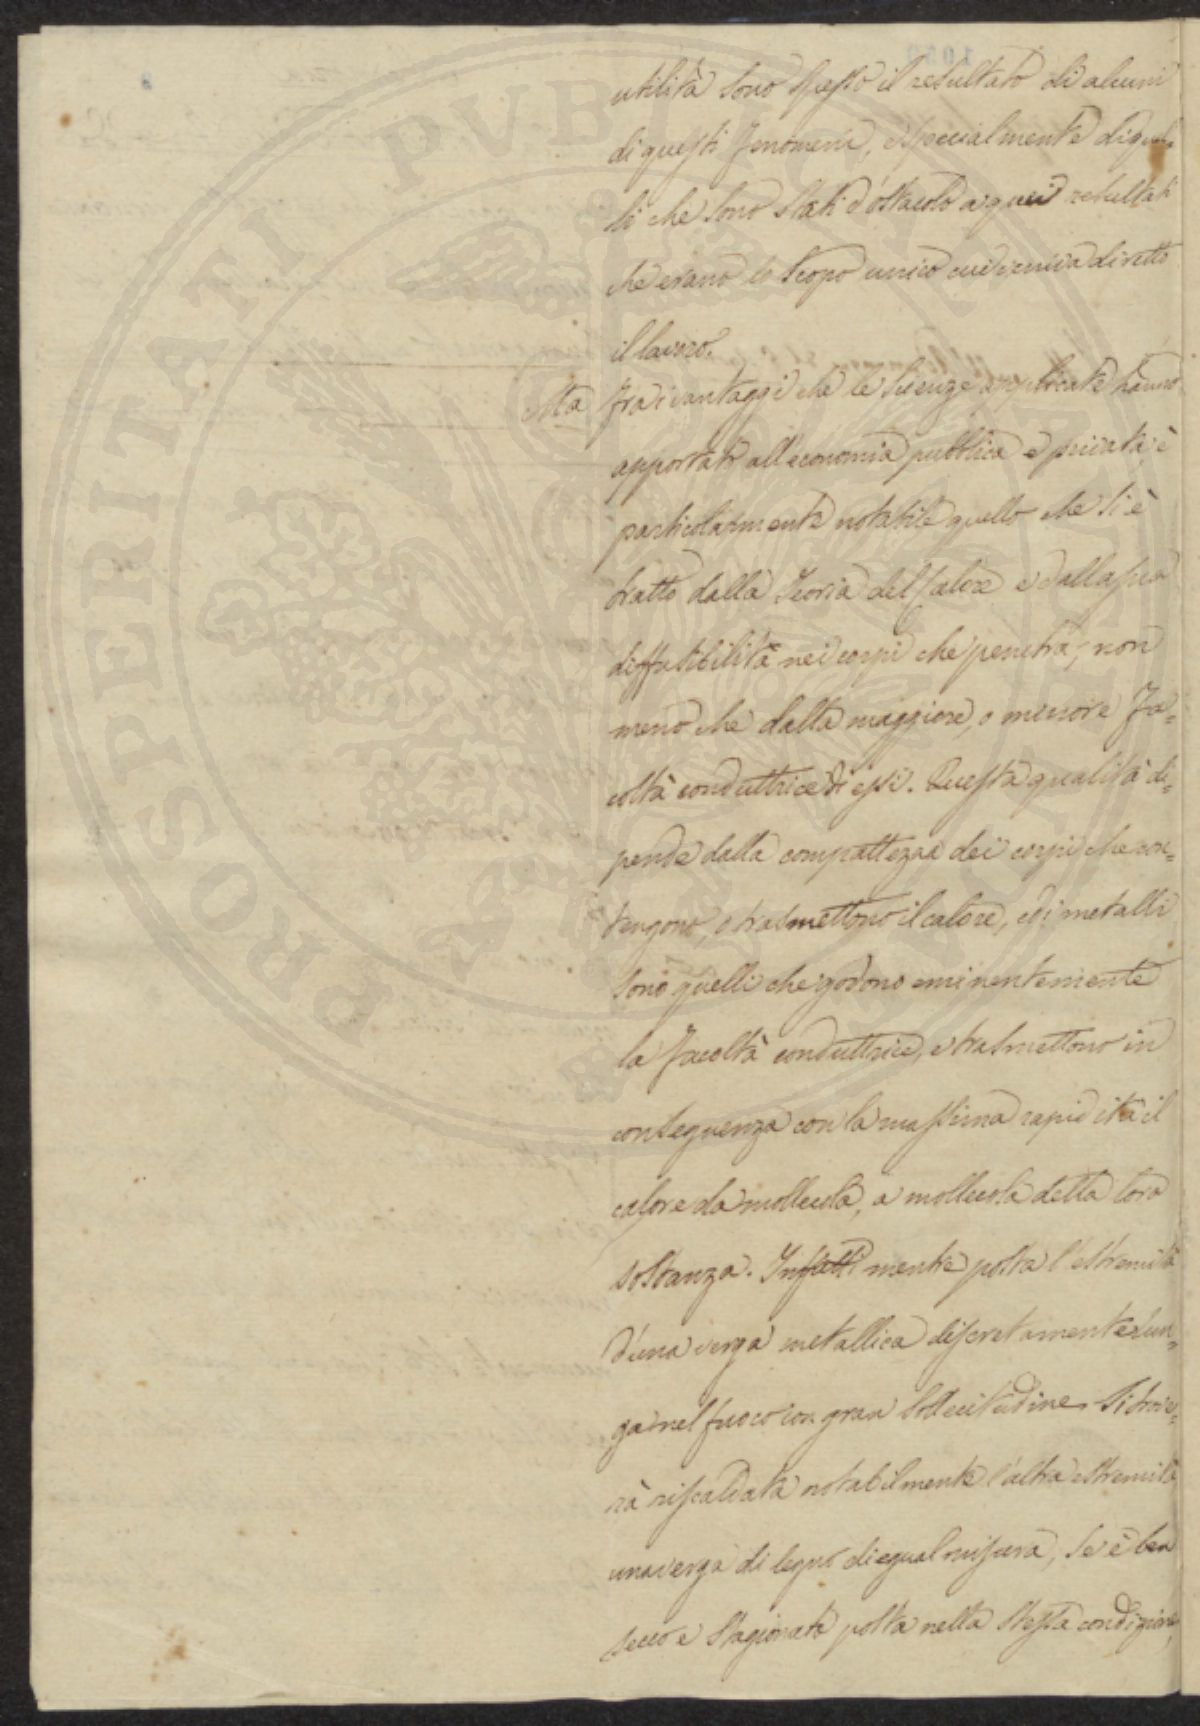 utilità sono spesso il resultato di alcuni
di questi fenomeni, e specialmente di quel=
li che sono stati d'ostacolo a quei resultati
che erano lo scopo unico cui veniva diretto
il lavoro.
Ma fra i vantaggi che le scienze applicate hanno
apportati all'economia pubblica e privata, è
particolarmente notabile quello che si è
tratto dalla Teoria del Calore e dalla sua
diffusibilità nei corpi che penetra, non
meno che dalla maggiore, o minore fa=
coltà conduttrice di essi. Questa qualità di=
pende dalla compattezza dei corpi che con=
tengono, o trasmettono il calore, ed i metalli
sono quelli che godono eminentemente
la facoltà conduttrice, e trasmettono in
conseguenza con la massima rapidità il
calore da mollecola, a mollecola della loro
sostanza. Infatti mentre posta l'estremità
d'una verga metallica discretamente lun=
ga nel fuoco con gran sollecitudine si trove=
rà riscaldata notabilmente l'altra estremità
una verga di legno di egual misura, se è ben
secco e stagionato posta nella stessa condizione,
PROSPERITATI PUBLICAE